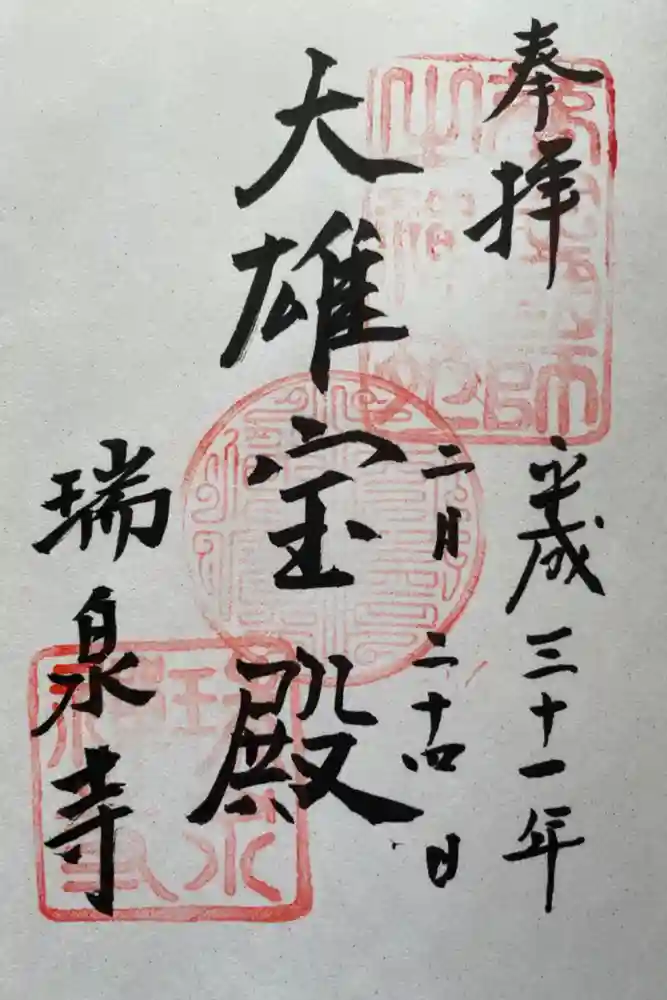 奉拝
平成三十一年
二月二十四日
大雄宝殿
瑞泉寺